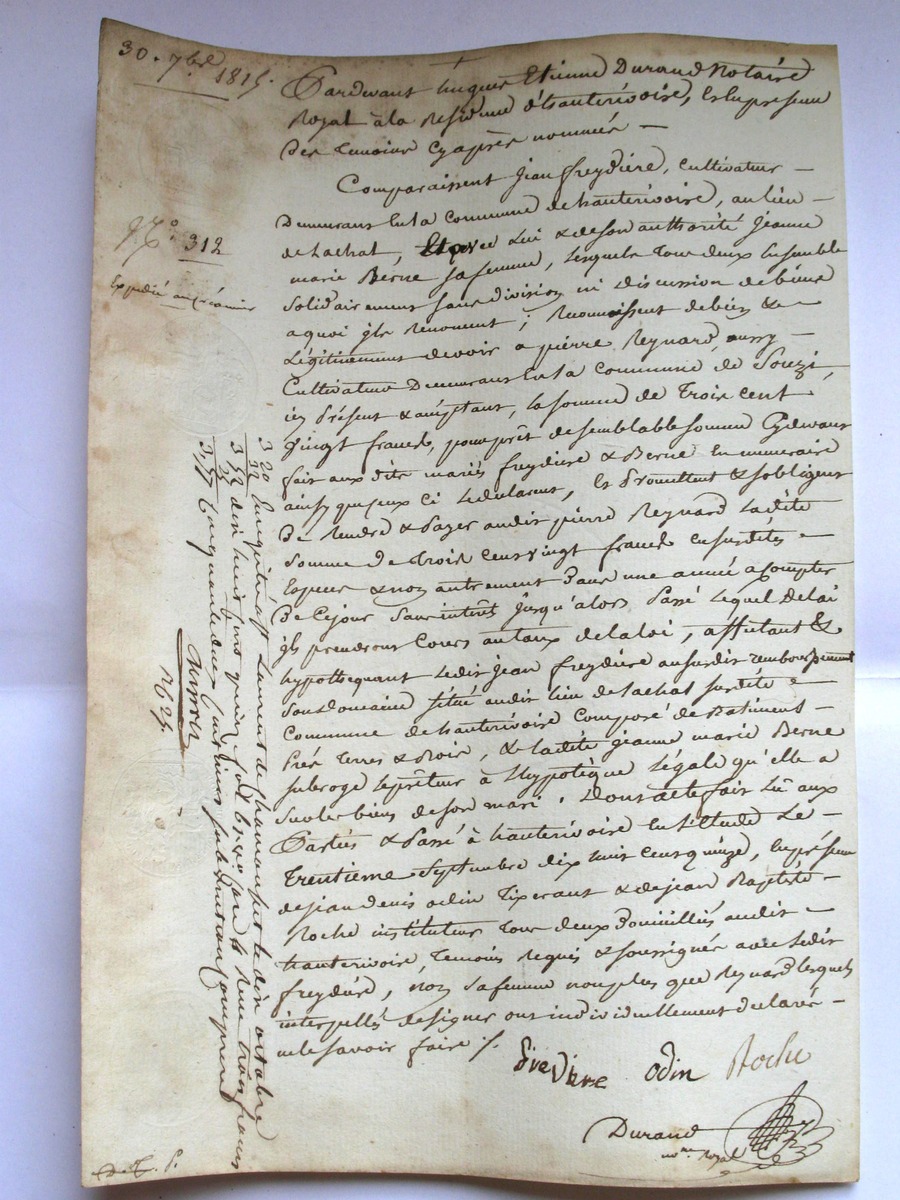 30. 7bre 1815.
Pardevant hugues Etienne Durand Notaire
Royal à la Residence d'hauterivoire, En la presence
Des temoins Cy après nommés —
Comparaissent jean freydiere, cultivateur —
Demeurans En la commune de hauterivoire, au lieu —
de Lachat, Et avec Lui & de son authorité jeanne
marie Berne sa femme, lesquels tous deux Ensemble
Solidairement sans division ni discussion de biens
a quoi ils Renoncent ; Reconnaissent debien & —
Légitimement devoir a pierre Reynard, aussy —
Cultivateur Demeurans En la commune de Souzi,
icy Présent & acceptant, la somme de Trois Cent
Vingt francs, pour prêt de semblable somme Cydevans
fait aux dits mariés freydiere & Berne En numeraire
ainsy que ceux ci Le declarent, Et Promettent & s'obligent
De Rendre & Payer audit pierre Reynard Ladite
Somme De Trois cens vingt francs En susdites —
Especes & non autrement Dans une année a compter
De Ce jour Sans intérêt jusqu'alors Passé Lequel Délai
ils prendrons Cours au taux de la loi, affectant &
hypothequant Ledit jean freydiere au susdit remboursement
Son domaine situé audit lieu de Lachat susdite —
Commune de hauterivoire Composé de Batiments —
Prés Terres & Bois, & Ladite jeanne marie Berne
subroge Le prêteur à L'hypotèque Légale qu'elle a
Sur les biens de son mari. Dont acte fait Lû aux
Parties & Passé à hauterivoire En L'Etude Le —
Trentieme Septembre dix huit cens quinze, En présence
de jean denis odin Tixerant & de jean Baptiste —
Roche instituteur tous deux Domiciliés audit —
hauterivoire, Temoins Requis & soussignés avec Ledit
freydiere, non sa femme non plus que Reynard lesquels
interpellés de signer ont individuellement declarés —
ne le savoir faire /.
freydiere odin Roche
Durand
nore Royal
No. 312
Expedié au créancier
320
32
352
3,52
Enregistré à St Laurent de Chamousset le dix octobre
dix huit cent quinze fol. Reçu trois francs
Cinquante deux Centimes Subvention Comprise
1624.
D. T. P.